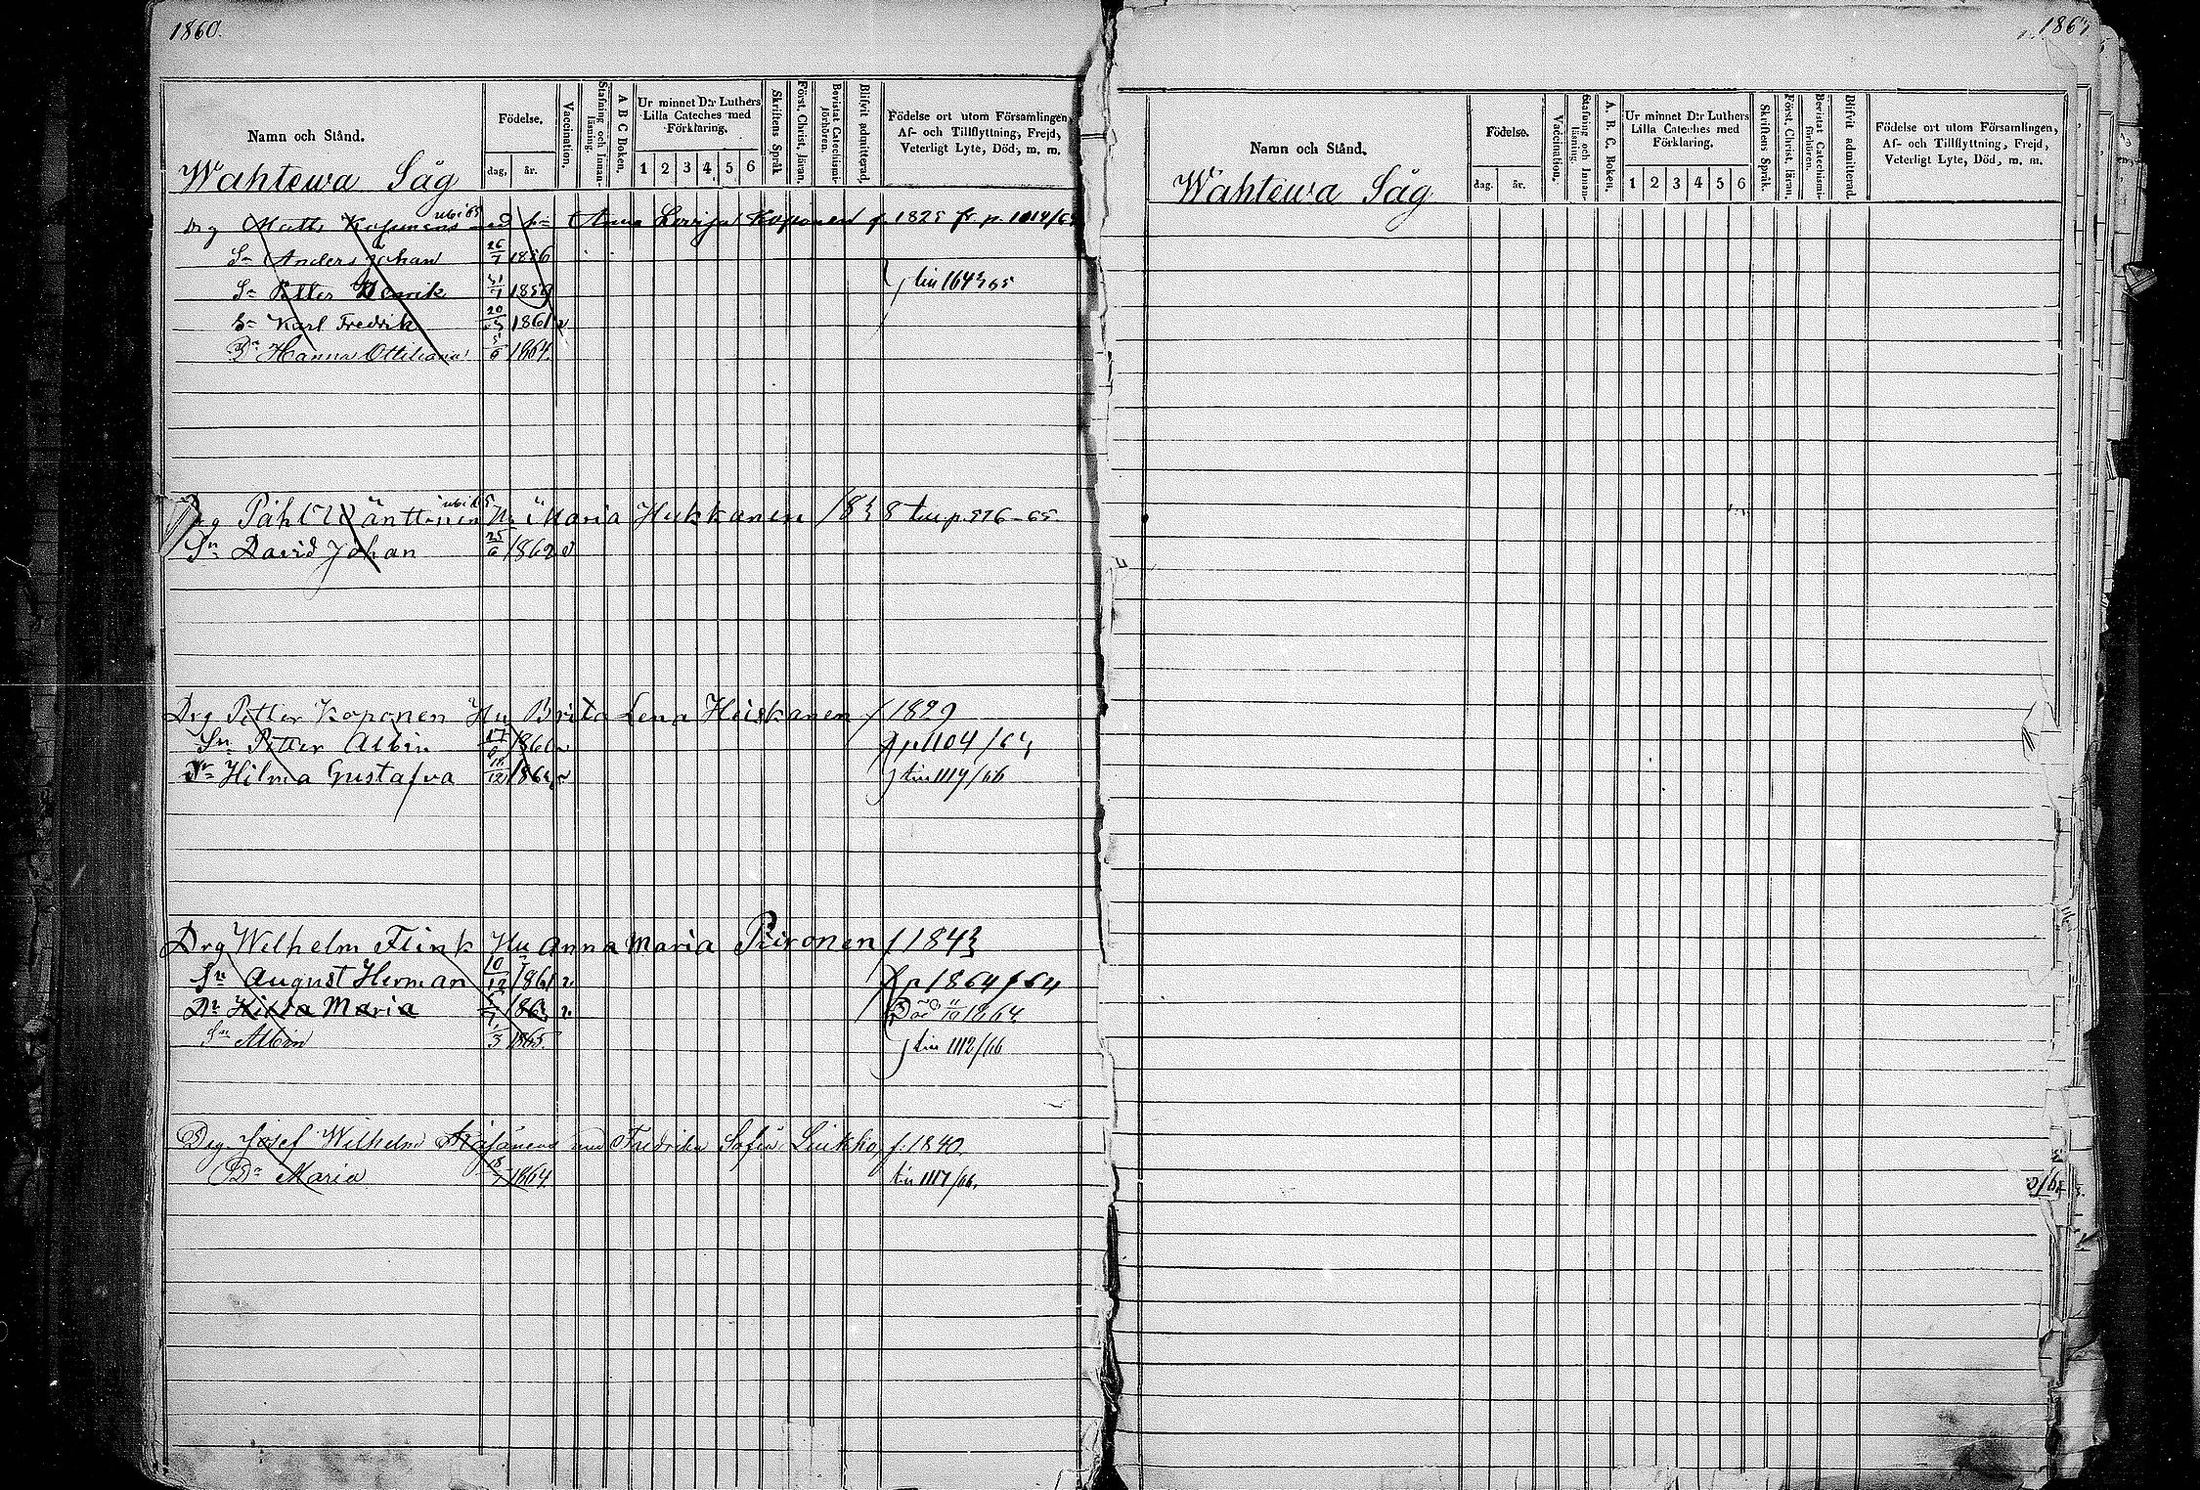 1860.
Namn och Stånd.
Födelse.
dag. år.
Vaccination.
Stafning och Innan-läsning.
A B C Boken.
Ur minnet D:r Luthers Lilla Cateches med Förklaring.
1 2 3 4 5 6
Skriftens Språk
Först. Christ. läran.
Bevistat Catechismi-förhören.
Blifvit admitterad.
Födelse ort utom Församlingen, Af- och Tillflyttning, Frejd, Veterligt Lyte, Död, m. m.
Wahtewa Såg
Drg Matts Koponens Anna Lovisa Koponen f. 1825 fr. p. 1014/64
Sn Anders Johan 26/7 1856
Sn Petter Henrik 1859 tin 1643 65
Sn Karl Fredrik 20 1861 v
Dr Hanna Ottiliana 5/6 1864.
Drg Påhl Wänttinen Hu Maria Hukkanen 1838 tin p. 576-65.
Sn David Johan 25/6 1862 v
Drg Petter Koponen Hu Brita Lena Heiskanen f 1829
Sn Petter Albin 17 1860 v fr p 1104/63
Dr Hilma Gustafva 18/12 1863 v tin 1119/66
Drg Wilhelm Flink Hu Anna Maria Piironen f 1843
Sn August Herman 10/12 1861 v fr p 1864/64
Dr Hilda Maria 1863 v. Död 11/10 1864
Sn Albin 1/3 1865. tin 1112/66
Drg Josef Wilhelm Fredrika Sofia Liukko, f. 1840.
Dr Maria 18/7 1864. tin 1117/66.
Namn och Stånd.
Födelse.
dag. år.
Vaccination.
Stafning och Innan-läsning.
A. B. C. Boken.
Ur minnet D:r Luthers Lilla Cateches med Förklaring.
1 2 3 4 5 6
Skriftens Språk.
Först. Christ. läran.
Bevistat Catechismi-förhören.
Blifvit admitterad.
Födelse ort utom Församlingen, Af- och Tillflyttning, Frejd, Veterligt Lyte, Död, m. m.
Wahtewa Såg